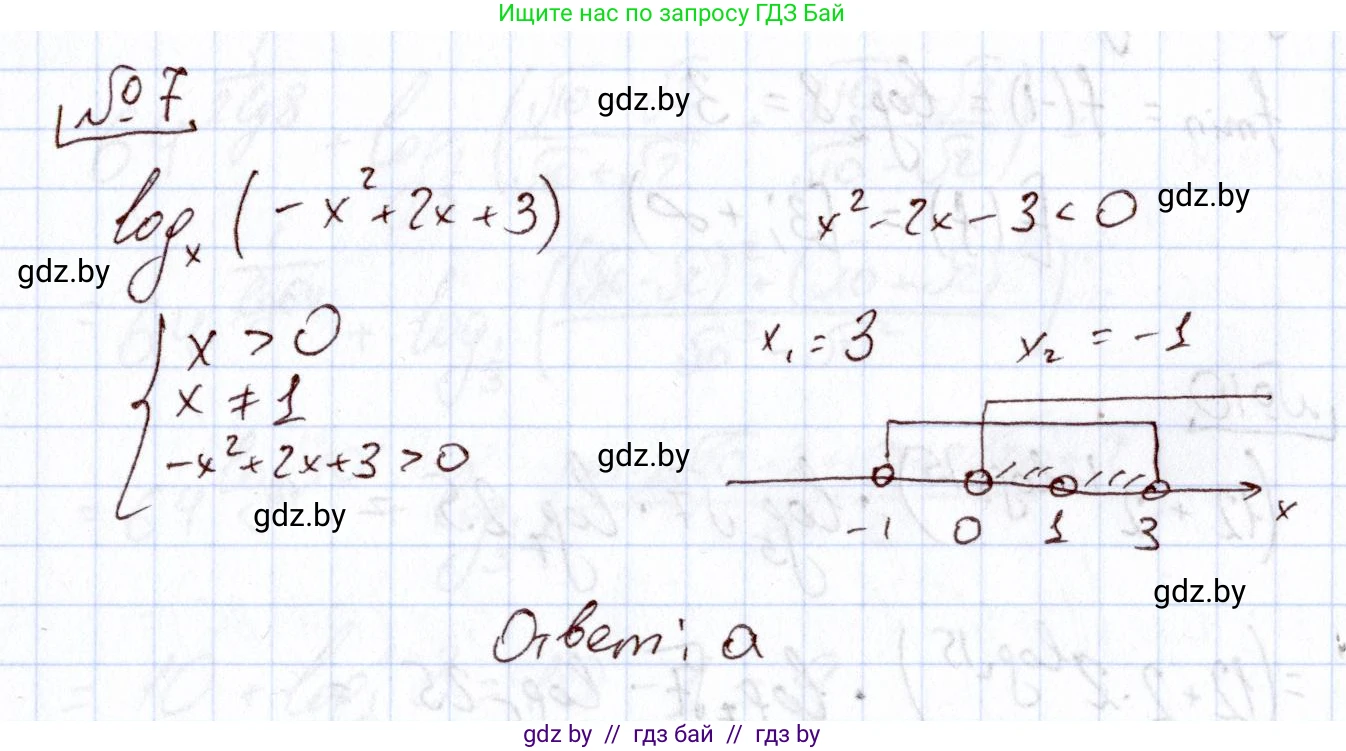 Ищите нас по запросу ГДЗ Бай
№ 7.
gdz.by
logₓ (-x² + 2x + 3)
x² - 2x - 3 < 0
gdz.by
gdz.by
{ x > 0
x ≠ 1
-x² + 2x + 3 > 0
x₁ = 3
x₂ = -1
gdz.by
gdz.by
-1 0 1 3 x
gdz.by
Ответ: а
gdz.by // гдз бай // гдз by